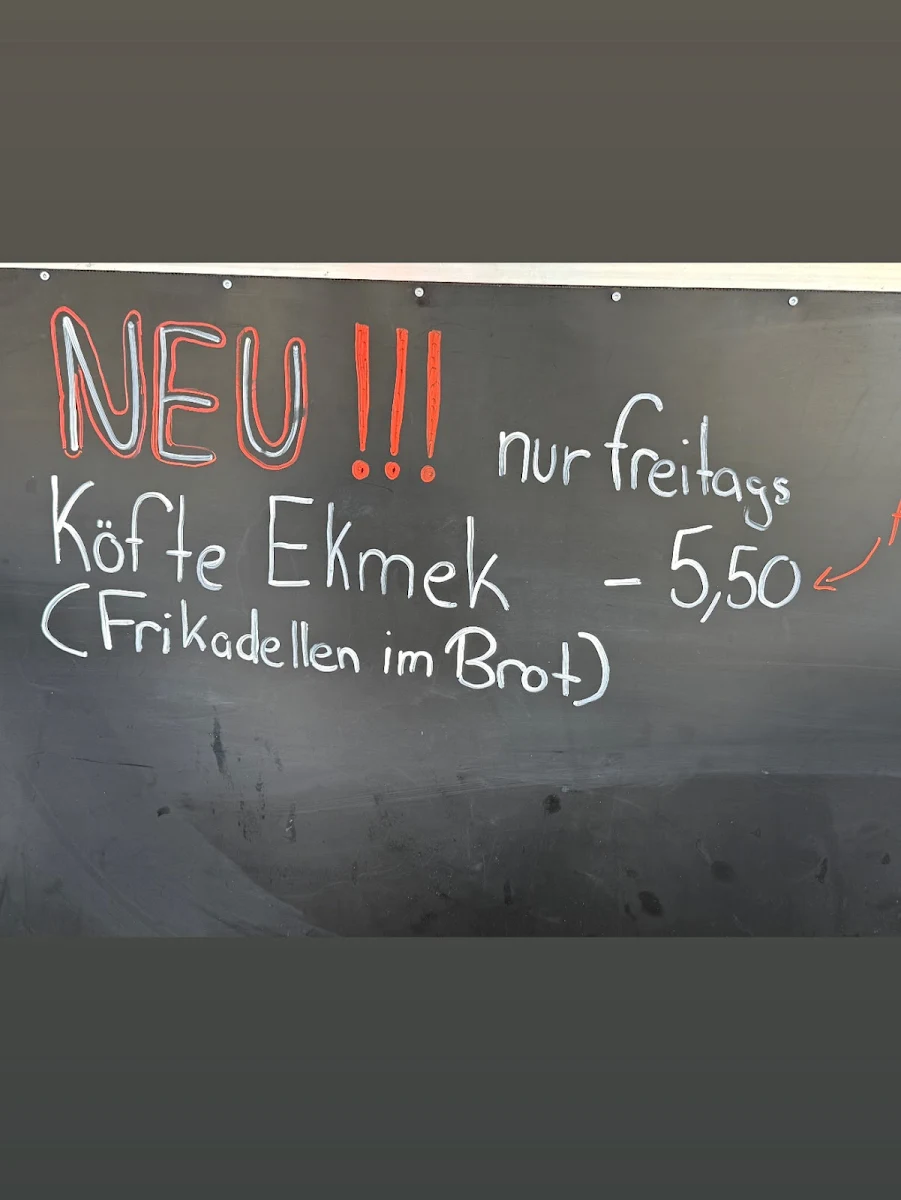 NEU !!!
nur freitags
Köfte Ekmek - 5,50
(Frikadellen im Brot)